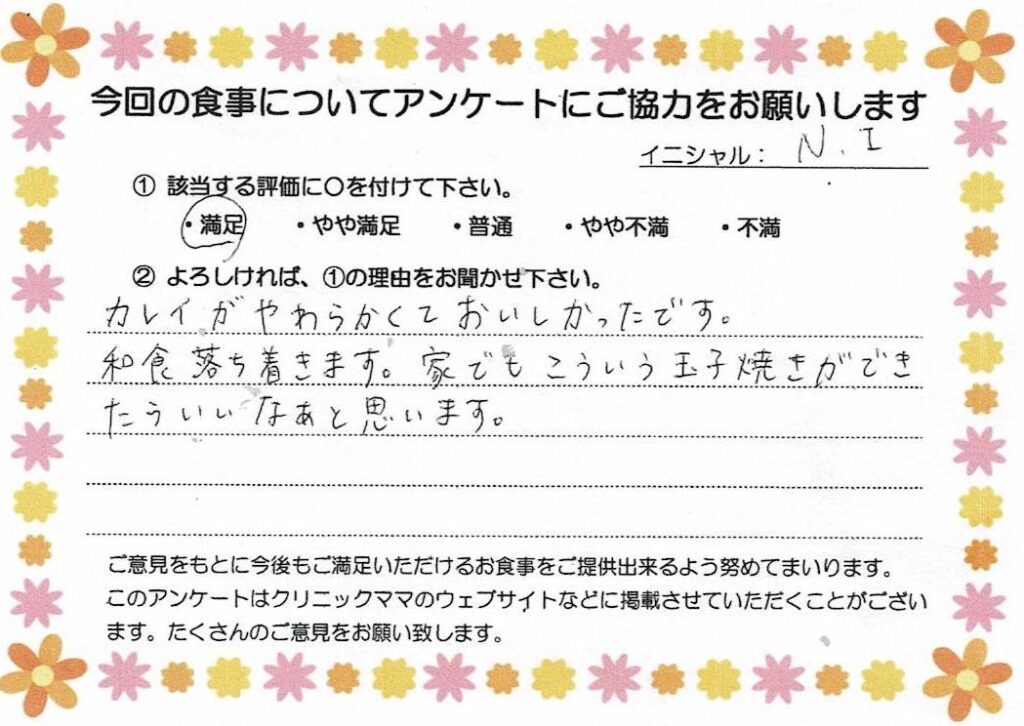 今回の食事についてアンケートにご協力をお願いします
イニシャル： N.I
① 該当する評価に〇を付けて下さい。
・満足 ・やや満足 ・普通 ・やや不満 ・不満
② よろしければ、①の理由をお聞かせ下さい。
カレイがやわらかくておいしかったです。
和食落ち着きます。家でもこういう玉子焼きができ
たらいいなぁと思います。
ご意見をもとに今後もご満足いただけるお食事をご提供出来るよう努めてまいります。
このアンケートはクリニックママのウェブサイトなどに掲載させていただくことがござい
ます。たくさんのご意見をお願い致します。